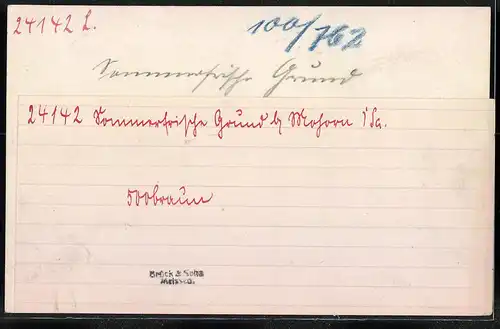 24142 L.
100/762
Sommerfrische Grund
24142 Sommerfrische Grund b/ Mohorn i/Sa.
500 braun
Brück & Sohn
Meissen.